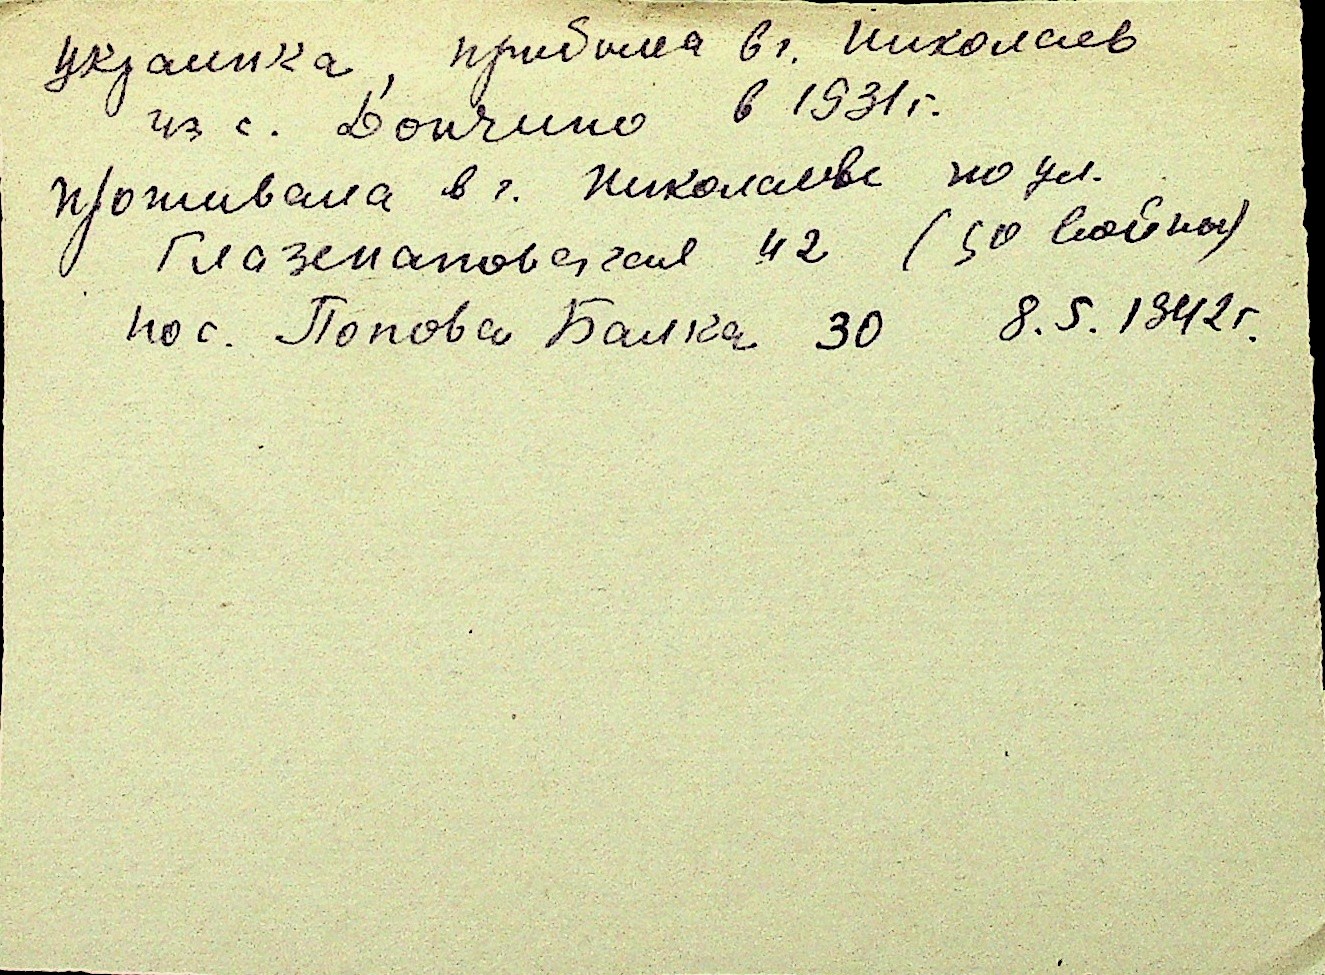 украинка, прибыла в г. Николаев
из с. Дончино в 1931г.
Проживала в г. Николаеве по ул.
Глазенаповская 42 (до войны)
пос. Попова Балка 30 8.5.1942г.